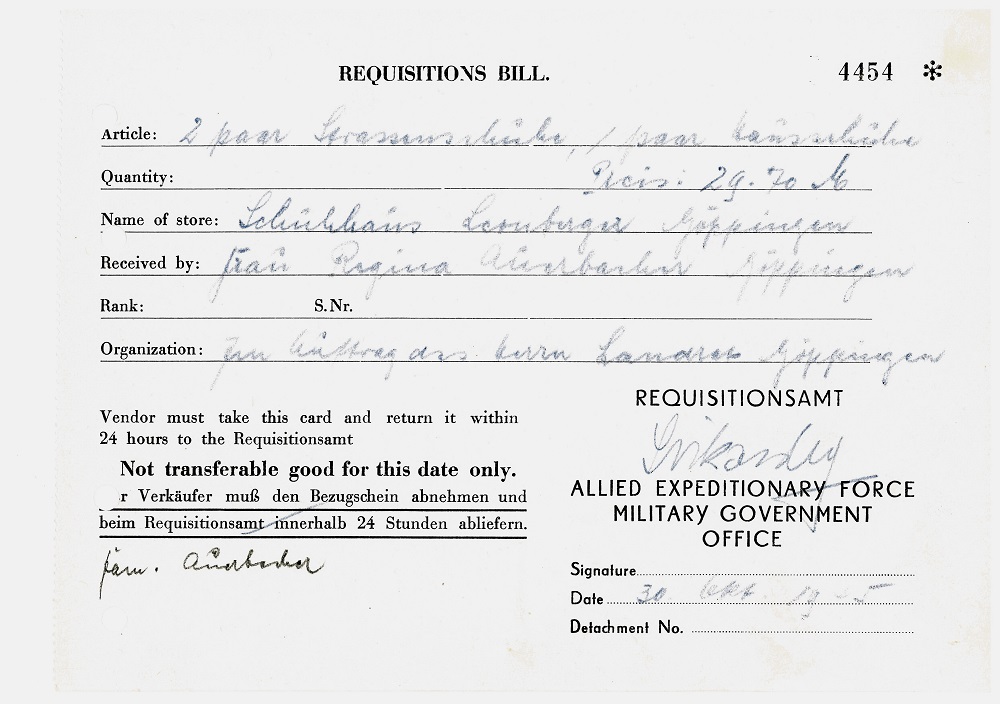 REQUISITIONS BILL.
4454 *
Article: 2 paar Strassenschuhe, 1 paar Hausschuhe
Quantity: Preis: 29.70 M
Name of store: Schuhhaus Leonberger Göppingen
Received by: Frau Regina Auerbacher Göppingen
Rank: S.Nr.
Organization: Im Auftrag des Herrn Landrat Göppingen
REQUISITIONSAMT
Vendor must take this card and return it within
24 hours to the Requisitionsamt
Not transferable good for this date only.
r Verkäufer muß den Bezugschein abnehmen und
beim Requisitionsamt innerhalb 24 Stunden abliefern.
Auerbacher
ALLIED EXPEDITIONARY FORCE
MILITARY GOVERNMENT
OFFICE
Signature
Date 30 Okt. 19 5
Detachment No.